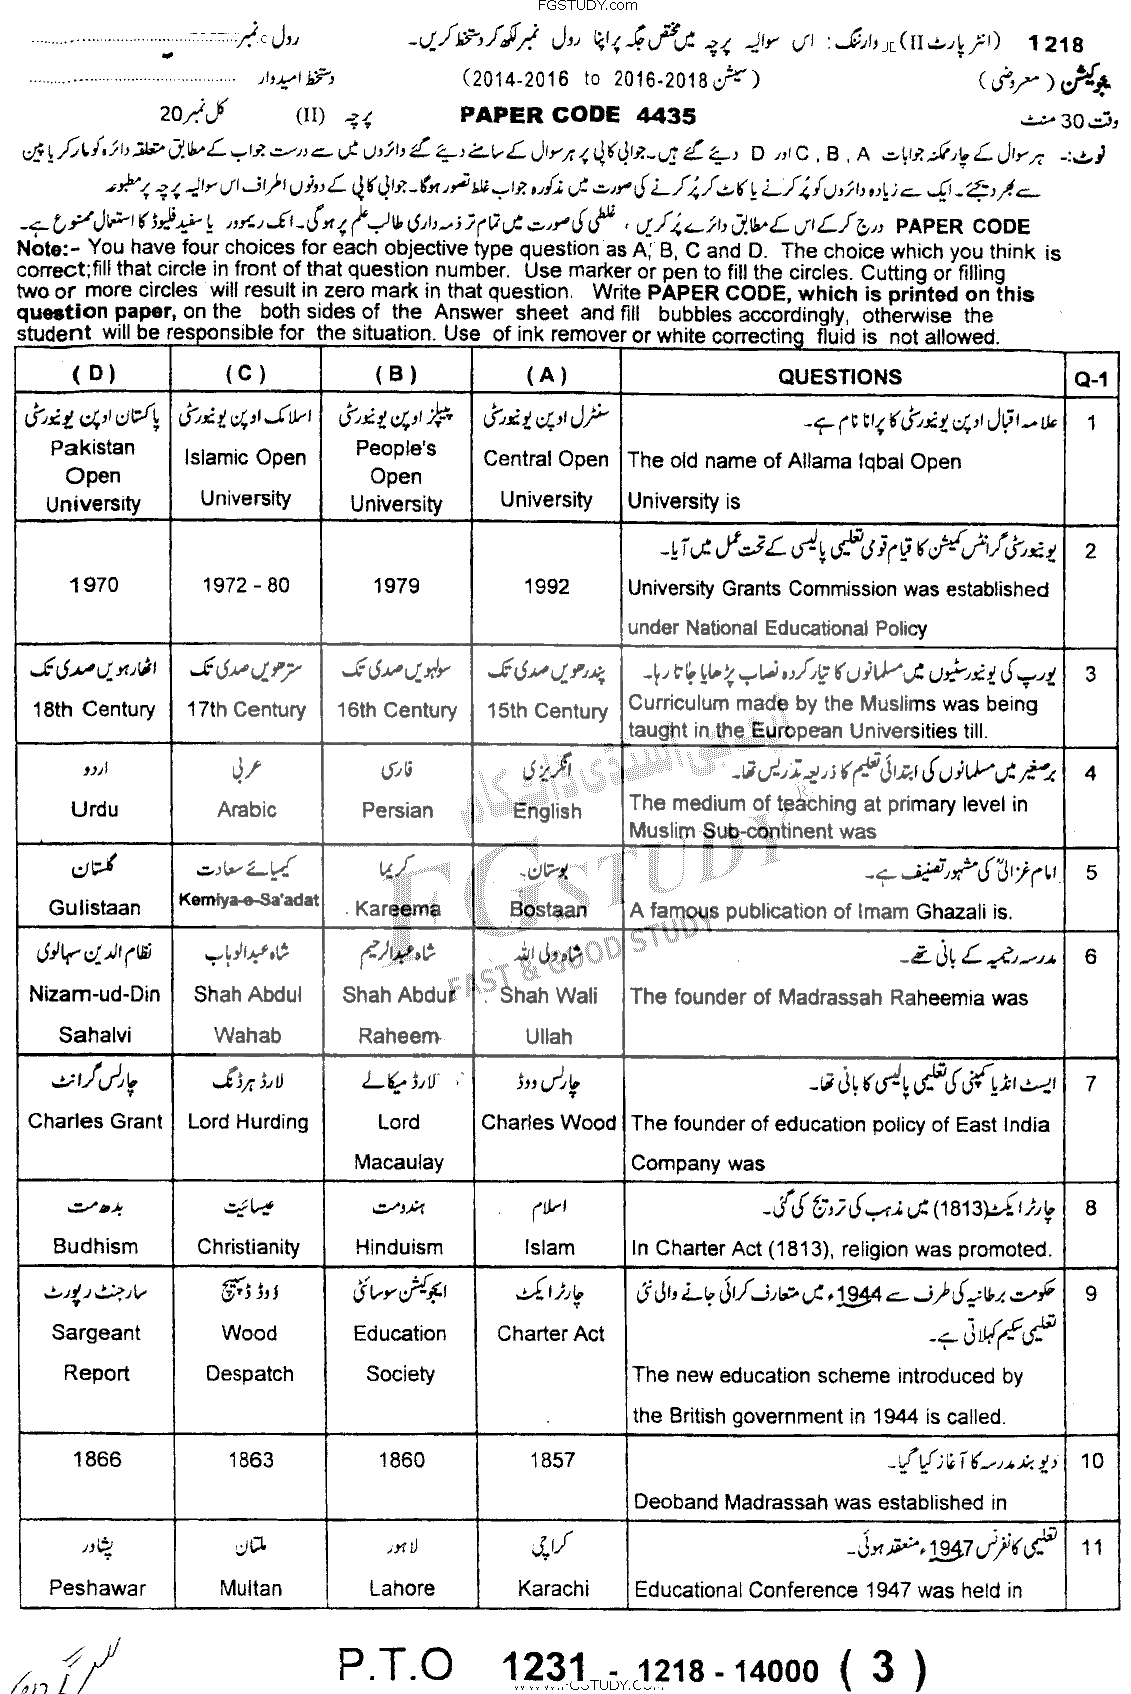 FGSTUDY.com
1218 (انٹر پارٹ II) وارننگ: اس سوالیہ پرچہ میں مختص جگہ پر اپنا رول نمبر لکھ کر دستخط کریں۔ رول نمبر
ایجوکیشن (معروضی) (سیشن 2016-2018 to 2014-2016) دستخط امیدوار
وقت 30 منٹ PAPER CODE 4435 پرچہ (II) کل نمبر 20
نوٹ:- ہر سوال کے چار ممکنہ جوابات A ، B ، C اور D دیئے گئے ہیں۔ جوابی کاپی پر ہر سوال کے سامنے دیئے گئے دائروں میں سے درست جواب کے مطابق متعلقہ دائرہ کو مارکر یا پین
سے بھر دیجئے۔ ایک سے زیادہ دائروں کو پُر کرنے یا کاٹ کر پُر کرنے کی صورت میں مذکورہ جواب غلط تصور ہوگا۔ جوابی کاپی کے دونوں اطراف اس سوالیہ پرچہ پر مطبوعہ
PAPER CODE درج کر کے اس کے مطابق دائرے پُر کریں ، غلطی کی صورت میں تمام تر ذمہ داری طالب علم پر ہوگی۔ انک ریموور یا سفید فلیوڈ کا استعمال ممنوع ہے۔
Note:- You have four choices for each objective type question as A, B, C and D. The choice which you think is
correct;fill that circle in front of that question number. Use marker or pen to fill the circles. Cutting or filling
two or more circles will result in zero mark in that question. Write PAPER CODE, which is printed on this
question paper, on the both sides of the Answer sheet and fill bubbles accordingly, otherwise the
student will be responsible for the situation. Use of ink remover or white correcting fluid is not allowed.
( D ) ( C ) ( B ) ( A ) QUESTIONS Q-1
پاکستان اوپن یونیورسٹی اسلامک اوپن یونیورسٹی پیپلز اوپن یونیورسٹی سنٹرل اوپن یونیورسٹی علامہ اقبال اوپن یونیورسٹی کا پرانا نام ہے۔ 1
Pakistan Open University Islamic Open University People's Open University Central Open University The old name of Allama Iqbal Open
University is
یونیورسٹی گرانٹس کمیشن کا قیام قومی تعلیمی پالیسی کے تحت عمل میں آیا۔ 2
1970 1972 - 80 1979 1992 University Grants Commission was established
under National Educational Policy
اٹھارہویں صدی تک سترھویں صدی تک سولہویں صدی تک پندرھویں صدی تک یورپ کی یونیورسٹیوں میں مسلمانوں کا تیار کردہ نصاب پڑھایا جاتا رہا۔ 3
18th Century 17th Century 16th Century 15th Century Curriculum made by the Muslims was being
taught in the European Universities till.
اردو عربی فارسی انگریزی برصغیر میں مسلمانوں کی ابتدائی تعلیم کا ذریعہ تدریس تھا۔ 4
Urdu Arabic Persian English The medium of teaching at primary level in
Muslim Sub-continent was
گلستان کیمیائے سعادت کریما بوستان۔ امام غزالیؒ کی مشہور تصنیف ہے۔ 5
Gulistaan Kemiya-e-Sa'adat Kareema Bostaan A famous publication of Imam Ghazali is.
نظام الدین سہالوی شاہ عبدالوہاب شاہ عبدالرحیم شاہ ولی اللہ مدرسہ رحیمیہ کے بانی تھے۔ 6
Nizam-ud-Din Sahalvi Shah Abdul Wahab Shah Abdur Raheem Shah Wali Ullah The founder of Madrassah Raheemia was
چارلس گرانٹ لارڈ ہرڈنگ لارڈ میکالے چارلس ووڈ ایسٹ انڈیا کمپنی کی تعلیمی پالیسی کا بانی تھا۔ 7
Charles Grant Lord Hurding Lord Macaulay Charles Wood The founder of education policy of East India
Company was
بدھ مت عیسائیت ہندومت اسلام چارٹر ایکٹ (1813) میں مذہب کی ترویج کی گئی۔ 8
Budhism Christianity Hinduism Islam In Charter Act (1813), religion was promoted.
سارجنٹ رپورٹ ووڈ ڈسپیچ ایجوکیشن سوسائٹی چارٹر ایکٹ حکومت برطانیہ کی طرف سے 1944ء میں متعارف کرائی جانے والی نئی 9
تعلیمی سکیم کہلاتی ہے۔
Sargeant Report Wood Despatch Education Society Charter Act The new education scheme introduced by
the British government in 1944 is called.
1866 1863 1860 1857 دیوبند مدرسہ کا آغاز کیا گیا۔ 10
Deoband Madrassah was established in
پشاور ملتان لاہور کراچی تعلیمی کانفرنس 1947ء منعقد ہوئی۔ 11
Peshawar Multan Lahore Karachi Educational Conference 1947 was held in
FG STUDY
FAST & GOOD STUDY
P.T.O 1231 - 1218 - 14000 ( 3 )
WWW.FGSTUDY.COM